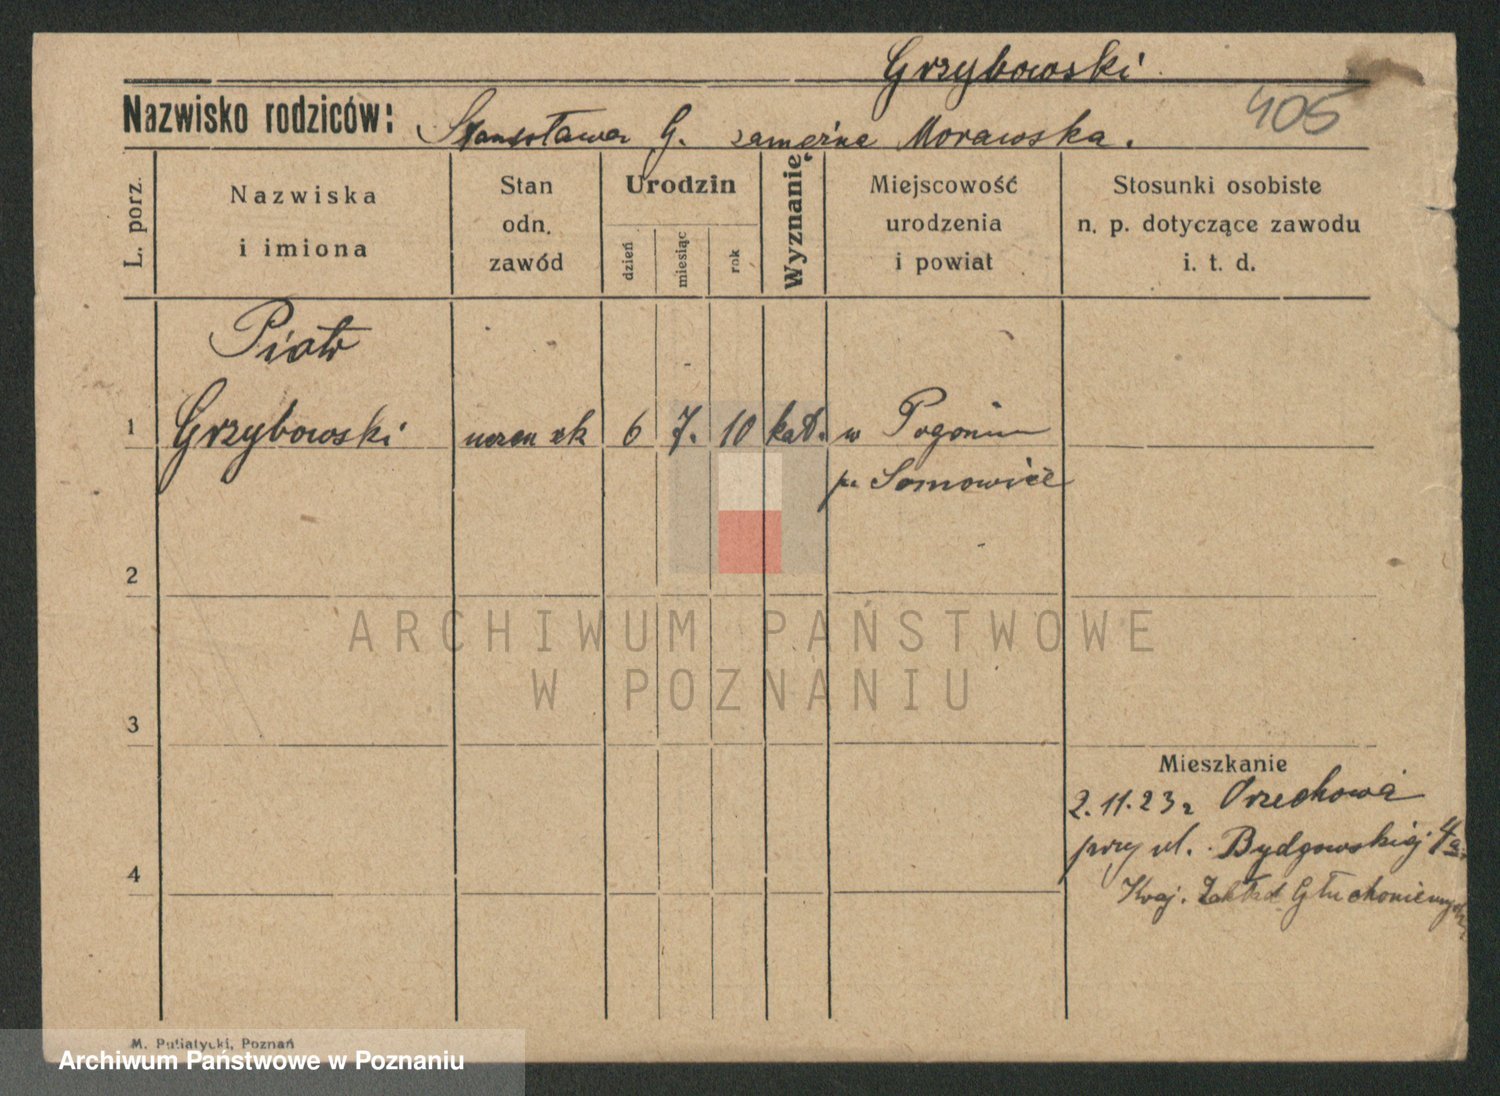 Grzybowski
Nazwisko rodziców:
Stanisława G. zamężna Morawska.
405
L. porz.
Nazwiska
i imiona
Stan
odn.
zawód
Urodzin
dzień
miesiąc
rok
Wyznanie
Miejscowość
urodzenia
i powiat
Stosunki osobiste
n. p. dotyczące zawodu
i. t. d.
Piotr
1 Grzybowski 6 7. 10 kat. w Pogoniu
2
ARCHIWUM PAŃSTWOWE
W POZNANIU
3
Mieszkanie
2.11.23 r Orzechowa
przy ul. Bydgowskiej 4a.
4
Kraj. Zakład Głuchoniemych
M. Putiatycki, Poznań
Archiwum Państwowe w Poznaniu